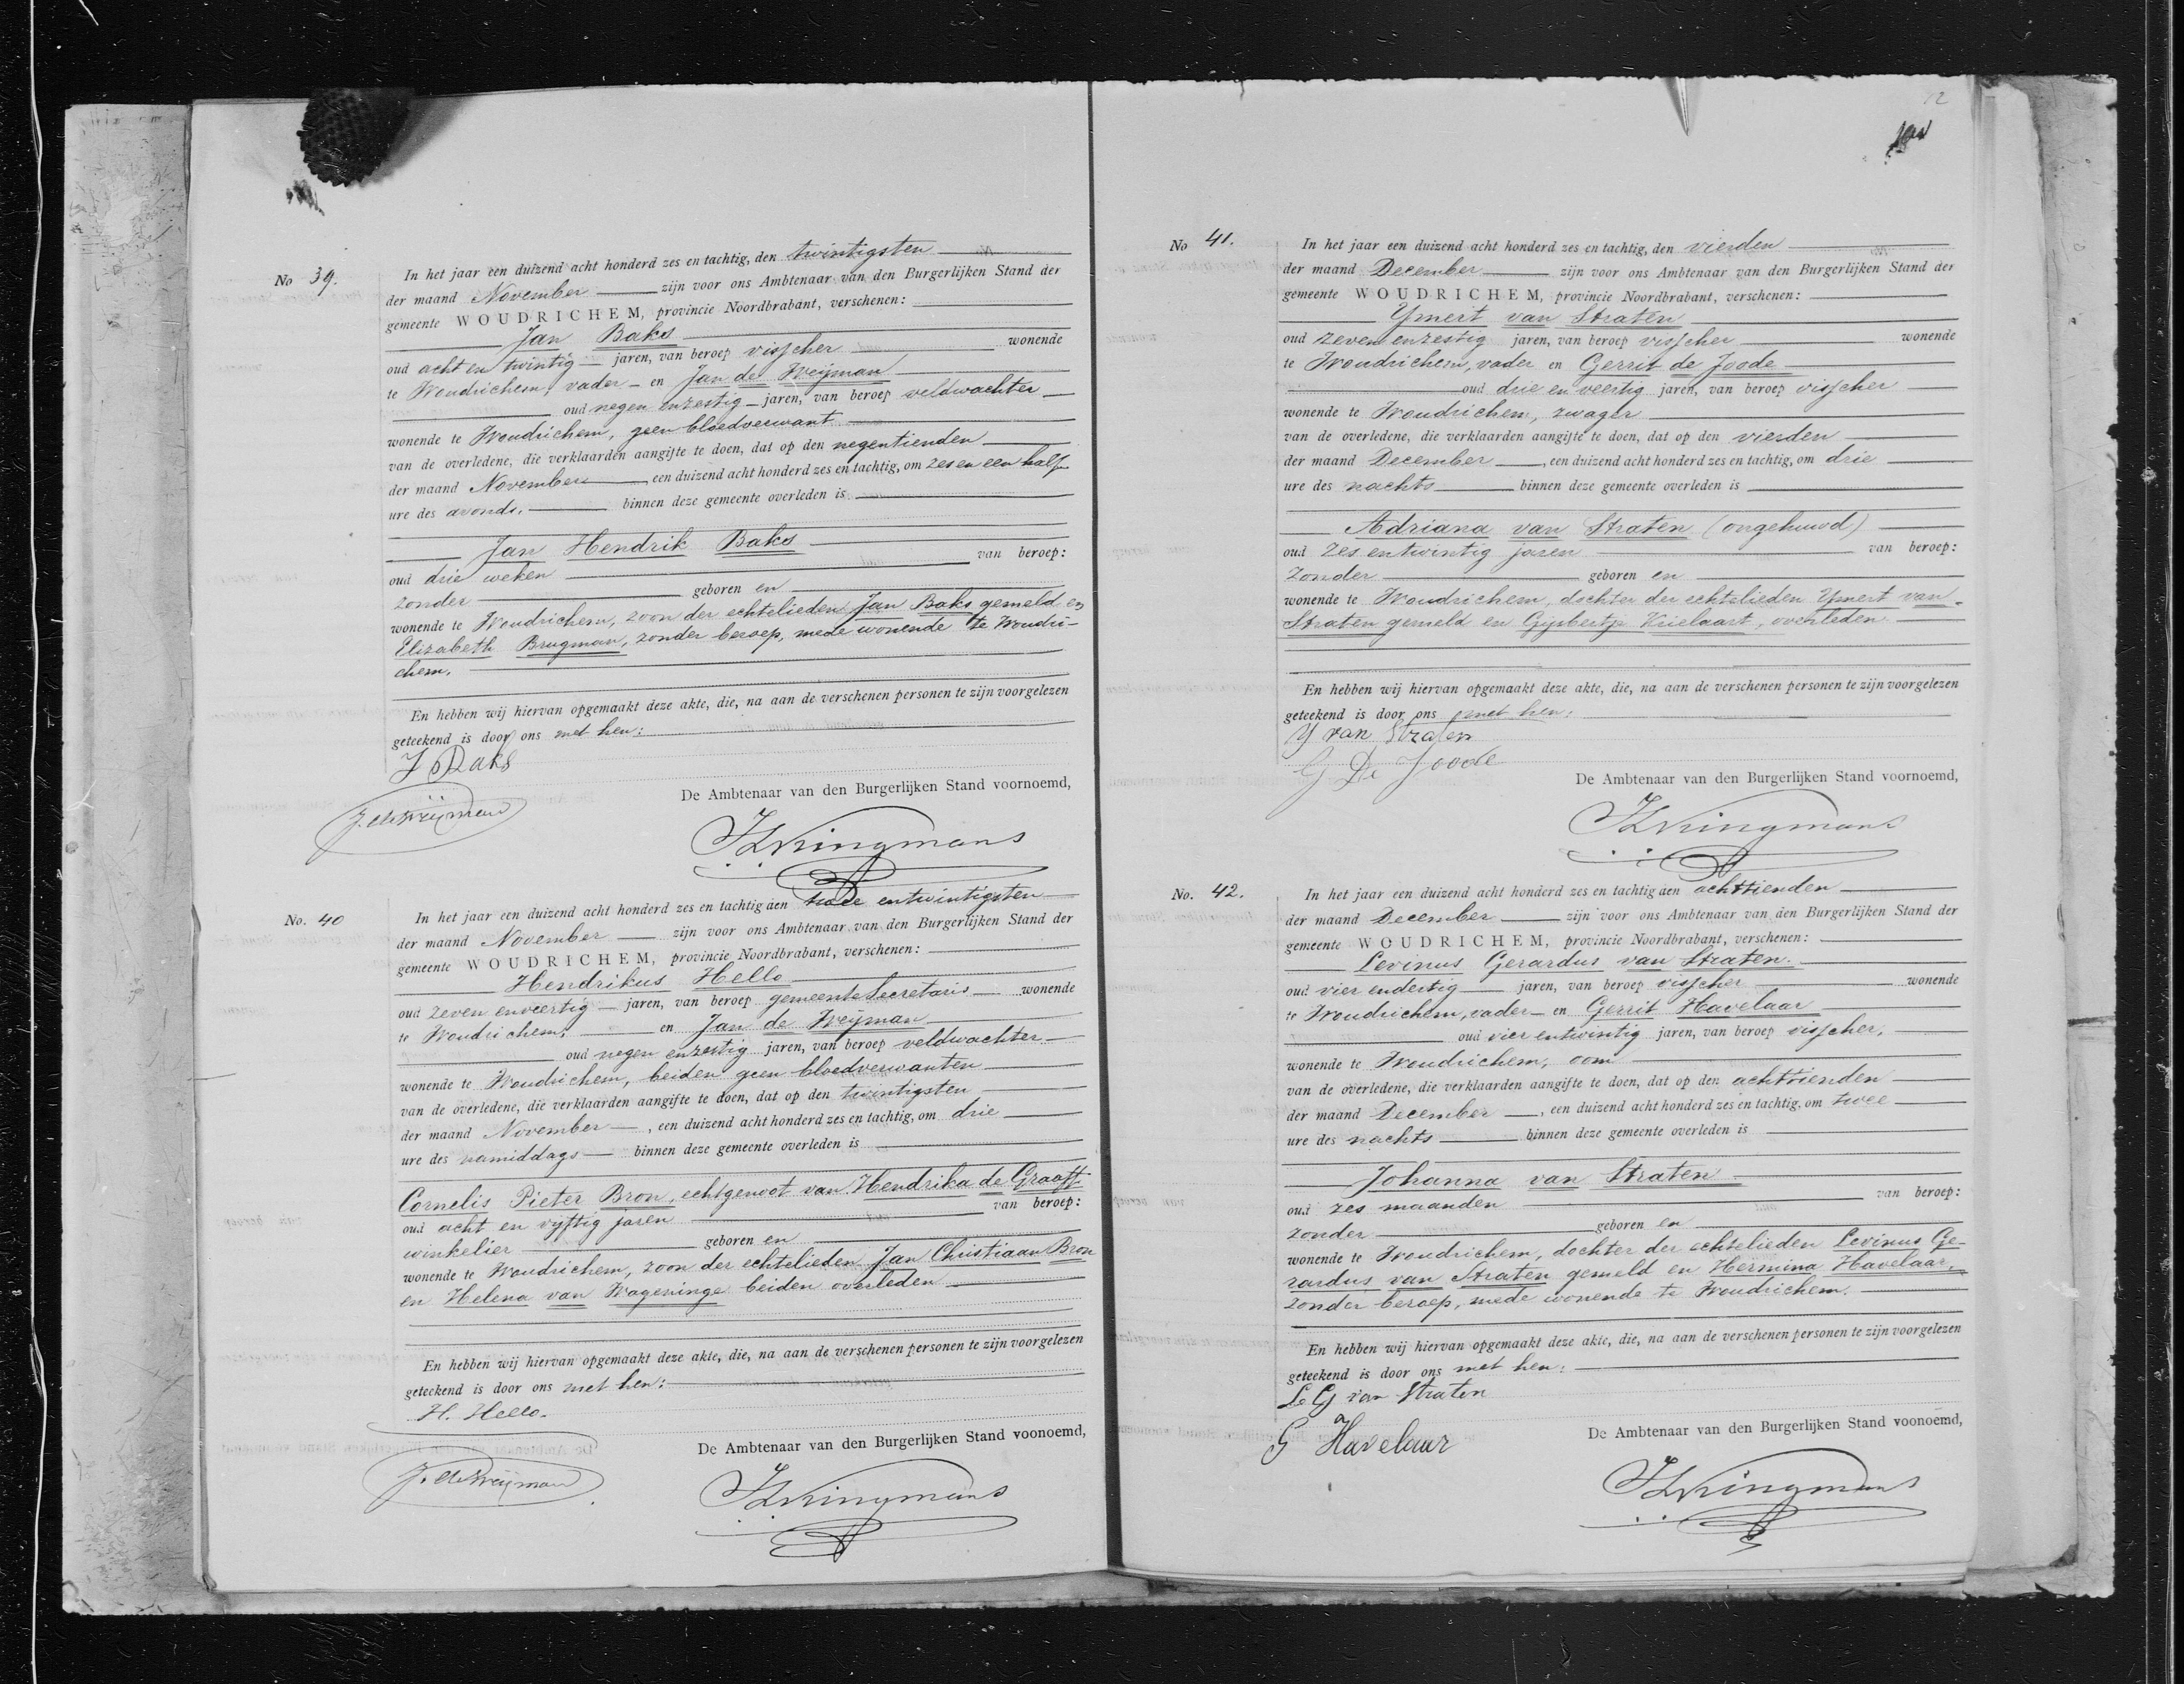 No 39.
In het jaar een duizend acht honderd zes en tachtig, den twintigsten
der maand November zijn voor ons Ambtenaar van den Burgerlijken Stand der
gemeente WOUDRICHEM, provincie Noordbrabant, verschenen:
Jan Baks
oud acht en twintig jaren, van beroep visscher wonende
te Woudrichem, vader en Jan de Weijman
oud negen enzestig jaren, van beroep veldwachter
wonende te Woudrichem, geen bloedverwant
van de overledene, die verklaarden aangifte te doen, dat op den negentienden
der maand November een duizend acht honderd zes en tachtig, om zes en een half
ure des avonds. binnen deze gemeente overleden is
Jan Hendrik Baks
oud drie weken van beroep:
zonder geboren en
wonende te Woudrichem, zoon der echtelieden Jan Baks gemeld en
Elizabeth Brugman, zonder beroep, mede wonende te Woudri-
chem.
En hebben wij hiervan opgemaakt deze akte, die, na aan de verschenen personen te zijn voorgelezen
geteekend is door ons met hen:
J Baks
J. de Weijman
De Ambtenaar van den Burgerlijken Stand voornoemd,
No. 40
In het jaar een duizend acht honderd zes en tachtig den twee entwintigsten
der maand November zijn voor ons Ambtenaar van den Burgerlijken Stand der
gemeente WOUDRICHEM, provincie Noordbrabant, verschenen:
Hendrikus Hello
oud zeven enveertig jaren, van beroep gemeente Secretaris wonende
te Woudrichem, en Jan de Weijman
oud negen enzestig jaren, van beroep veldwachter
wonende te Woudrichem, beiden geen bloedverwanten
van de overledene, die verklaarden aangifte te doen, dat op den twintigsten
der maand November, een duizend acht honderd zes en tachtig, om drie
ure des namiddags binnen deze gemeente overleden is
Cornelis Pieter Bron, echtgenoot van Hendrika de Graaff
oud acht en vyftig jaren van beroep:
winkelier geboren en
wonende te Woudrichem, zoon der echtelieden Jan Christiaan Bron
en Helena van Wageninge beiden overleden
En hebben wij hiervan opgemaakt deze akte, die, na aan de verschenen personen te zijn voorgelezen
geteekend is door ons met hen:
H. Hello.
J. de Weijman
De Ambtenaar van den Burgerlijken Stand voonoemd,
12
No 41.
In het jaar een duizend acht honderd zes en tachtig, den vierden
der maand December zijn voor ons Ambtenaar van den Burgerlijken Stand der
gemeente WOUDRICHEM, provincie Noordbrabant, verschenen:
Ymert van Straten
oud zeven enzestig jaren, van beroep visscher wonende
te Woudrichem, vader en Gerrit de Joode
oud drie en veertig jaren, van beroep visscher
wonende te Woudrichem, zwager
van de overledene, die verklaarden aangifte te doen, dat op den vierden
der maand December, een duizend acht honderd zes en tachtig, om drie
ure des nachts binnen deze gemeente overleden is
Adriana van Straten (ongehuwd)
oud zes entwintig jaren van beroep:
zonder geboren en
wonende te Woudrichem, dochter der echtelieden Ymert van
Straten gemeld en Gijsbertje Krielaart, overleden.
En hebben wij hiervan opgemaakt deze akte, die, na aan de verschenen personen te zijn voorgelezen
geteekend is door ons met hen:
Y van Straten
G De Joode
De Ambtenaar van den Burgerlijken Stand voornoemd,
No. 42.
In het jaar een duizend acht honderd zes en tachtig den achttienden
der maand December zijn voor ons Ambtenaar van den Burgerlijken Stand der
gemeente WOUDRICHEM, provincie Noordbrabant, verschenen:
Levinus Gerardus van Straten.
oud vier endertig jaren, van beroep visscher wonende
te Woudrichem, vader en Gerrit Havelaar
oud vier entwintig jaren, van beroep visscher,
wonende te Woudrichem, oom
van de overledene, die verklaarden aangifte te doen, dat op den achttienden
der maand December, een duizend acht honderd zes en tachtig, om twee
ure des nachts binnen deze gemeente overleden is
Johanna van Straten
oud zes maanden van beroep:
zonder geboren en
wonende te Woudrichem, dochter der echtelieden Levinus Ge-
rardus van Straten gemeld en Hermina Havelaar,
zonder beroep, mede wonende te Woudrichem.
En hebben wij hiervan opgemaakt deze akte, die, na aan de verschenen personen te zijn voorgelezen
geteekend is door ons met hen:
L G van Straten
G Havelaar
De Ambtenaar van den Burgerlijken Stand voonoemd,